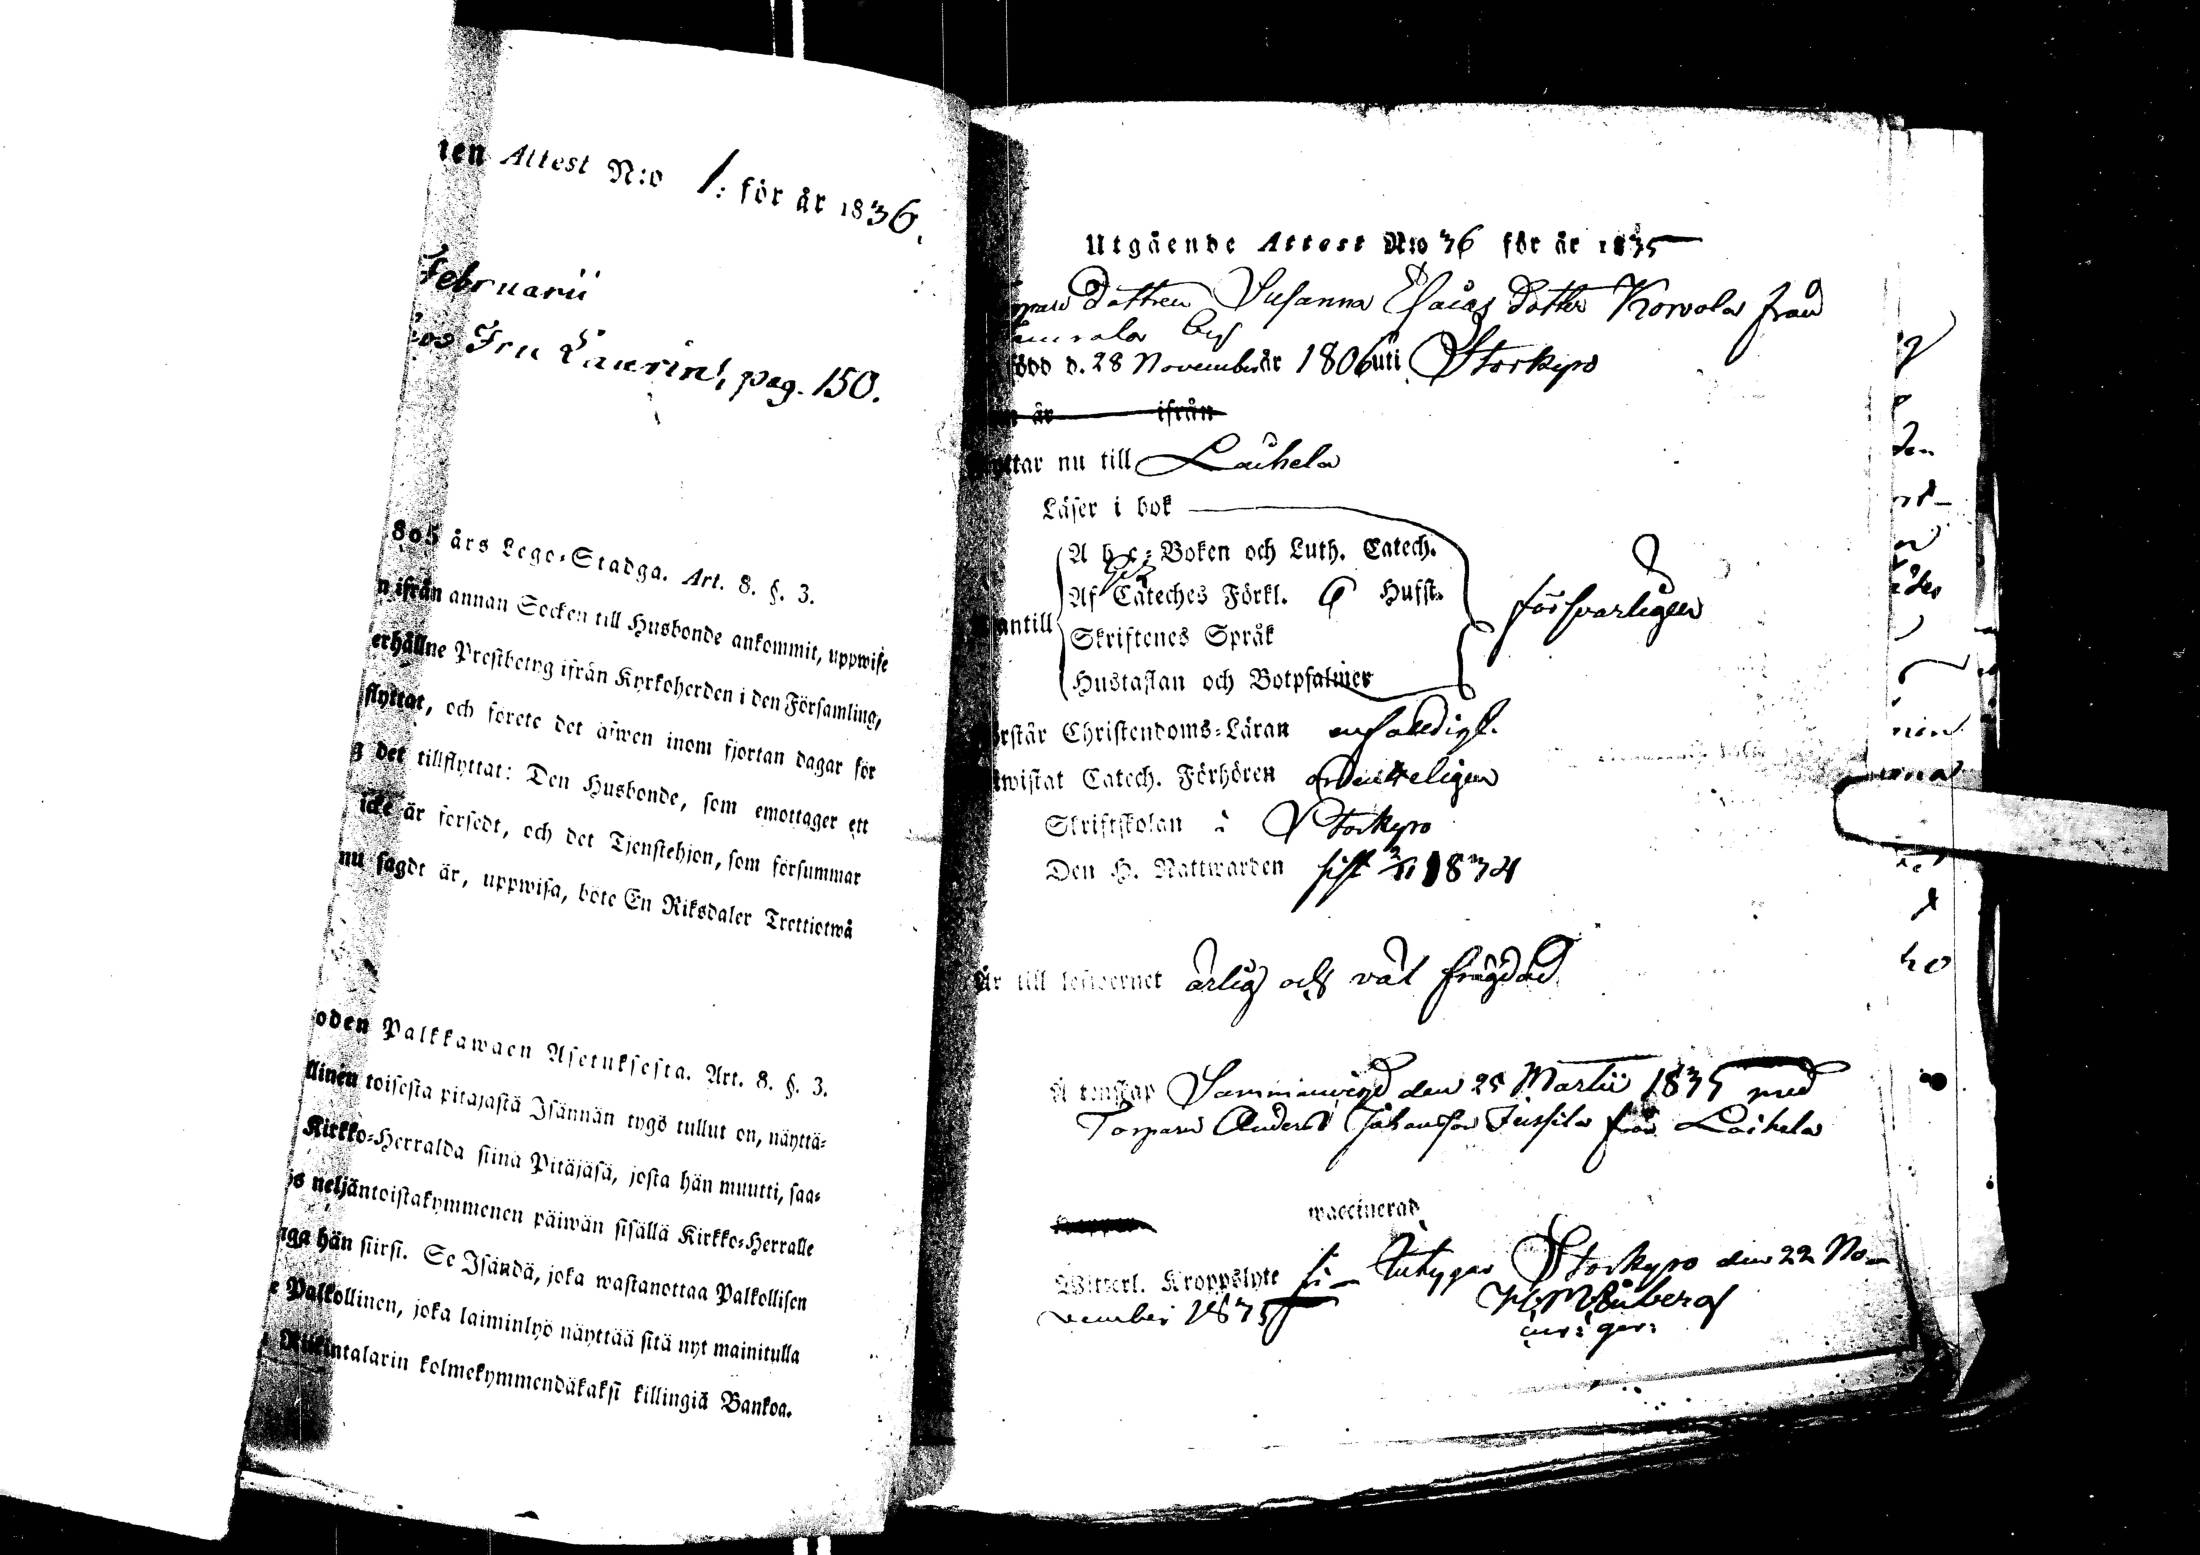 ien Attest N:o 1: för år 1836.
Februarii
hos Fru Laurin, pag. 150.
805 års Lego-Stadga. Art. 8. §. 3.
n ifrån annan Socken till Husbonde ankommit, uppwise
erhållne Prestbetyg ifrån Kyrkoherden i den Församling,
flyttat, och förete det äfwen inom fjortan dagar för
g det tillflyttat: Den Husbonde, som emottager ett
icke är försedt, och det Tjenstehjon, som försummar
nu sagdt är, uppwisa, böte En Riksdaler Trettiotwå
oden Palkkawäen Asetuksesta. Art. 8. §. 3.
llinen toisesta pitäjästä Isännän tygö tullut on, näyttä-
Kirkko-Herralda siinä Pitäjäsä, josta hän muutti, saa-
ös neljäntoistakymmenen päiwän sisällä Kirkko-Herralle
nga hän siirsi. Se Isändä, joka wastanottaa Palkollisen
e Palkollinen, joka laiminlyö näyttää sitä nyt mainitulla
Riikintalarin kolmekymmendäkaksi killingiä Bankoa.
Utgående Attest N:o 36 för år 1835
Dottren Susanna Esaias Dotter Korvola från
by
född d. 28 November år 1806 uti Storkyro
är ifrån
yttar nu till Laihela
Läser i bok
A b c-Boken och Luth. Catech.
Af Cateches Förkl. 6 Hufst.
antill
Skriftenes Språk
försvarligen
Hustaflan och Botpsalmer
örstår Christendoms-Läran enfaldigt.
wistat Catech. Förhören ordenteligen
Skriftskolan i Storkyro
Den H. Nattwarden sist 2/11 1834
Är till lefwernet ärlig och väl frägdad
Äktenskap Sammanvigd den 25 Martii 1835 med
Torparen Anders Johansson Jussila från Laihela
Koppor waccinerad
Witterl. Kroppslyte fri – Betygar Storkyro den 22 No-
vember 1835